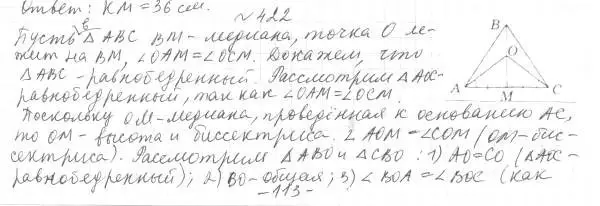 Ответ: КМ = 36 см.
№422
Пусть в △ABC BM - медиана, точка O ле-
жит на BM, ∠OAM = ∠OCM. Докажем, что
△ABC - равнобедренный. Рассмотрим △AOC -
равнобедренный, так как ∠OAM = ∠OCM.
Поскольку OM - медиана, проведённая к основанию AC,
то OM - высота и биссектриса. ∠AOM = ∠COM (OM - бис-
сектриса). Рассмотрим △ABO и △CBO: 1) AO = CO (△AOC -
равнобедренный); 2) BO - общая; 3) ∠BOA = ∠BOC (как
- 113 -
B
O
A
M
C